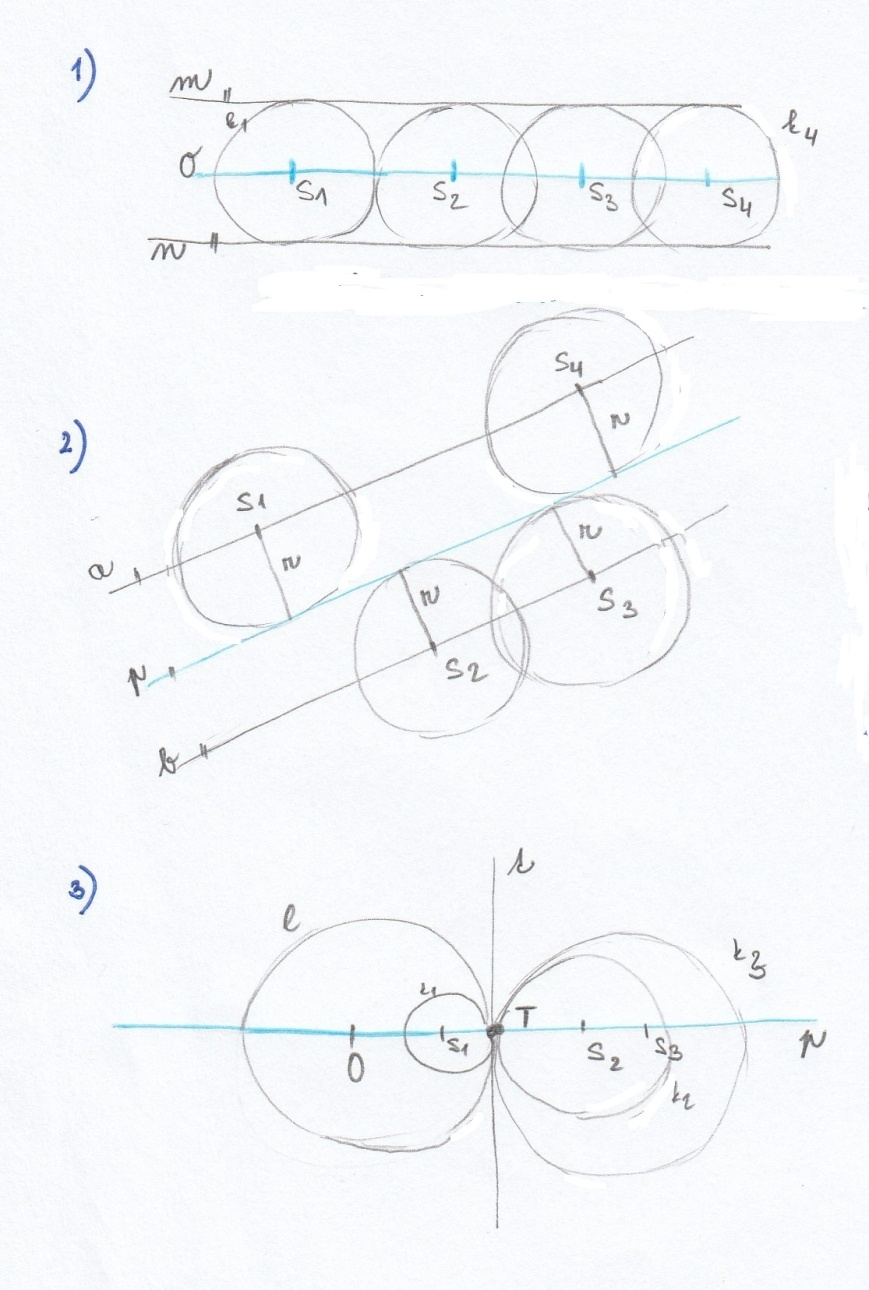 1)
m
k1
k4
o
S1
S2
S3
S4
n
S4
r
2)
S1
r
a
r
r
S3
S2
p
b
3)
t
l
k3
k1
T
S1
S2
S3
O
p
k2